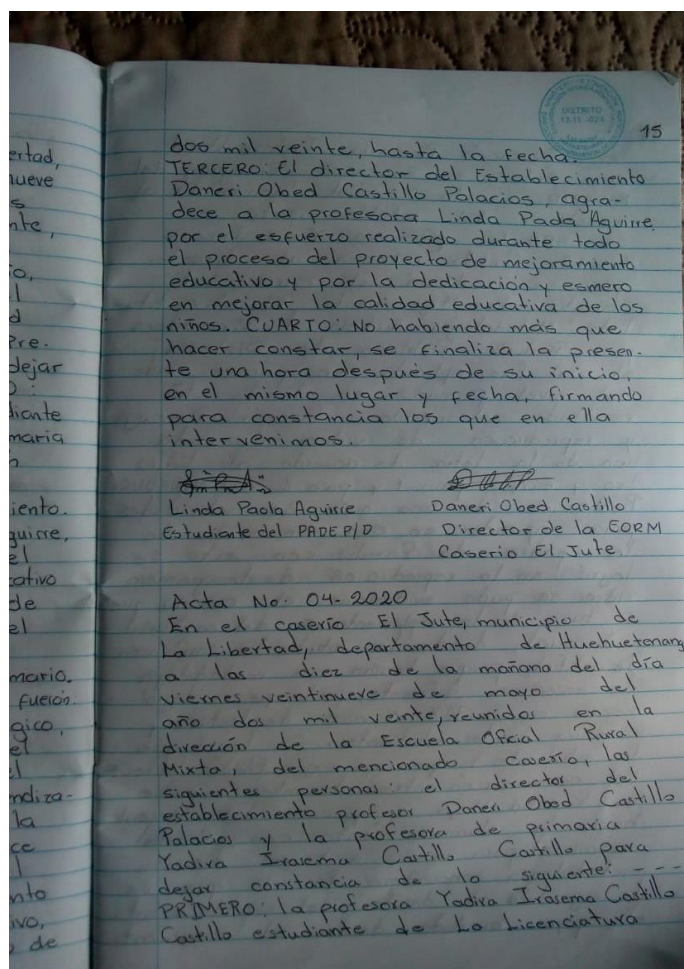 DISTRITO
15
dos mil veinte, hasta la fecha.
TERCERO: El director del Establecimiento
Daneri Obed Castillo Palacios, agra-
dece a la profesora Linda Paola Aguirre,
por el esfuerzo realizado durante todo
el proceso del proyecto de mejoramiento
educativo y por la dedicación y esmero
en mejorar la calidad educativa de los
niños. CUARTO: No habiendo más que
hacer constar, se finaliza la presen-
te una hora después de su inicio,
en el mismo lugar y fecha, firmando
para constancia los que en ella
intervenimos.
Linda Paola Aguirre
Estudiante del PADEP/D
Daneri Obed Castillo
Director de la EORM
Caserio El Jute
Acta No. 04-2020
En el caserío El Jute, municipio de
La Libertad, departamento de Huehuetenang
a las diez de la mañana del día
viernes veintinueve de mayo del
año dos mil veinte, reunidos en la
dirección de la Escuela Oficial Rural
Mixta, del mencionado caserío, las
siguientes personas: el director del
establecimiento profesor Daneri Obed Castillo
Palacios y la profesora de primaria
Yadira Irasema Castillo Castillo para
dejar constancia de lo siguiente: ---
PRIMERO: la profesora Yadira Irasema Castillo
Castillo estudiante de La Licenciatura
ertad,
nueve
s
nte,
io,
l
d
Pre.
dejar
diante
maria
n
iento.
guirre,
el
cativo
de
el
mario.
fueron
gico,
el
el
ndiza-
la
ce
l
nto
ivo,
de